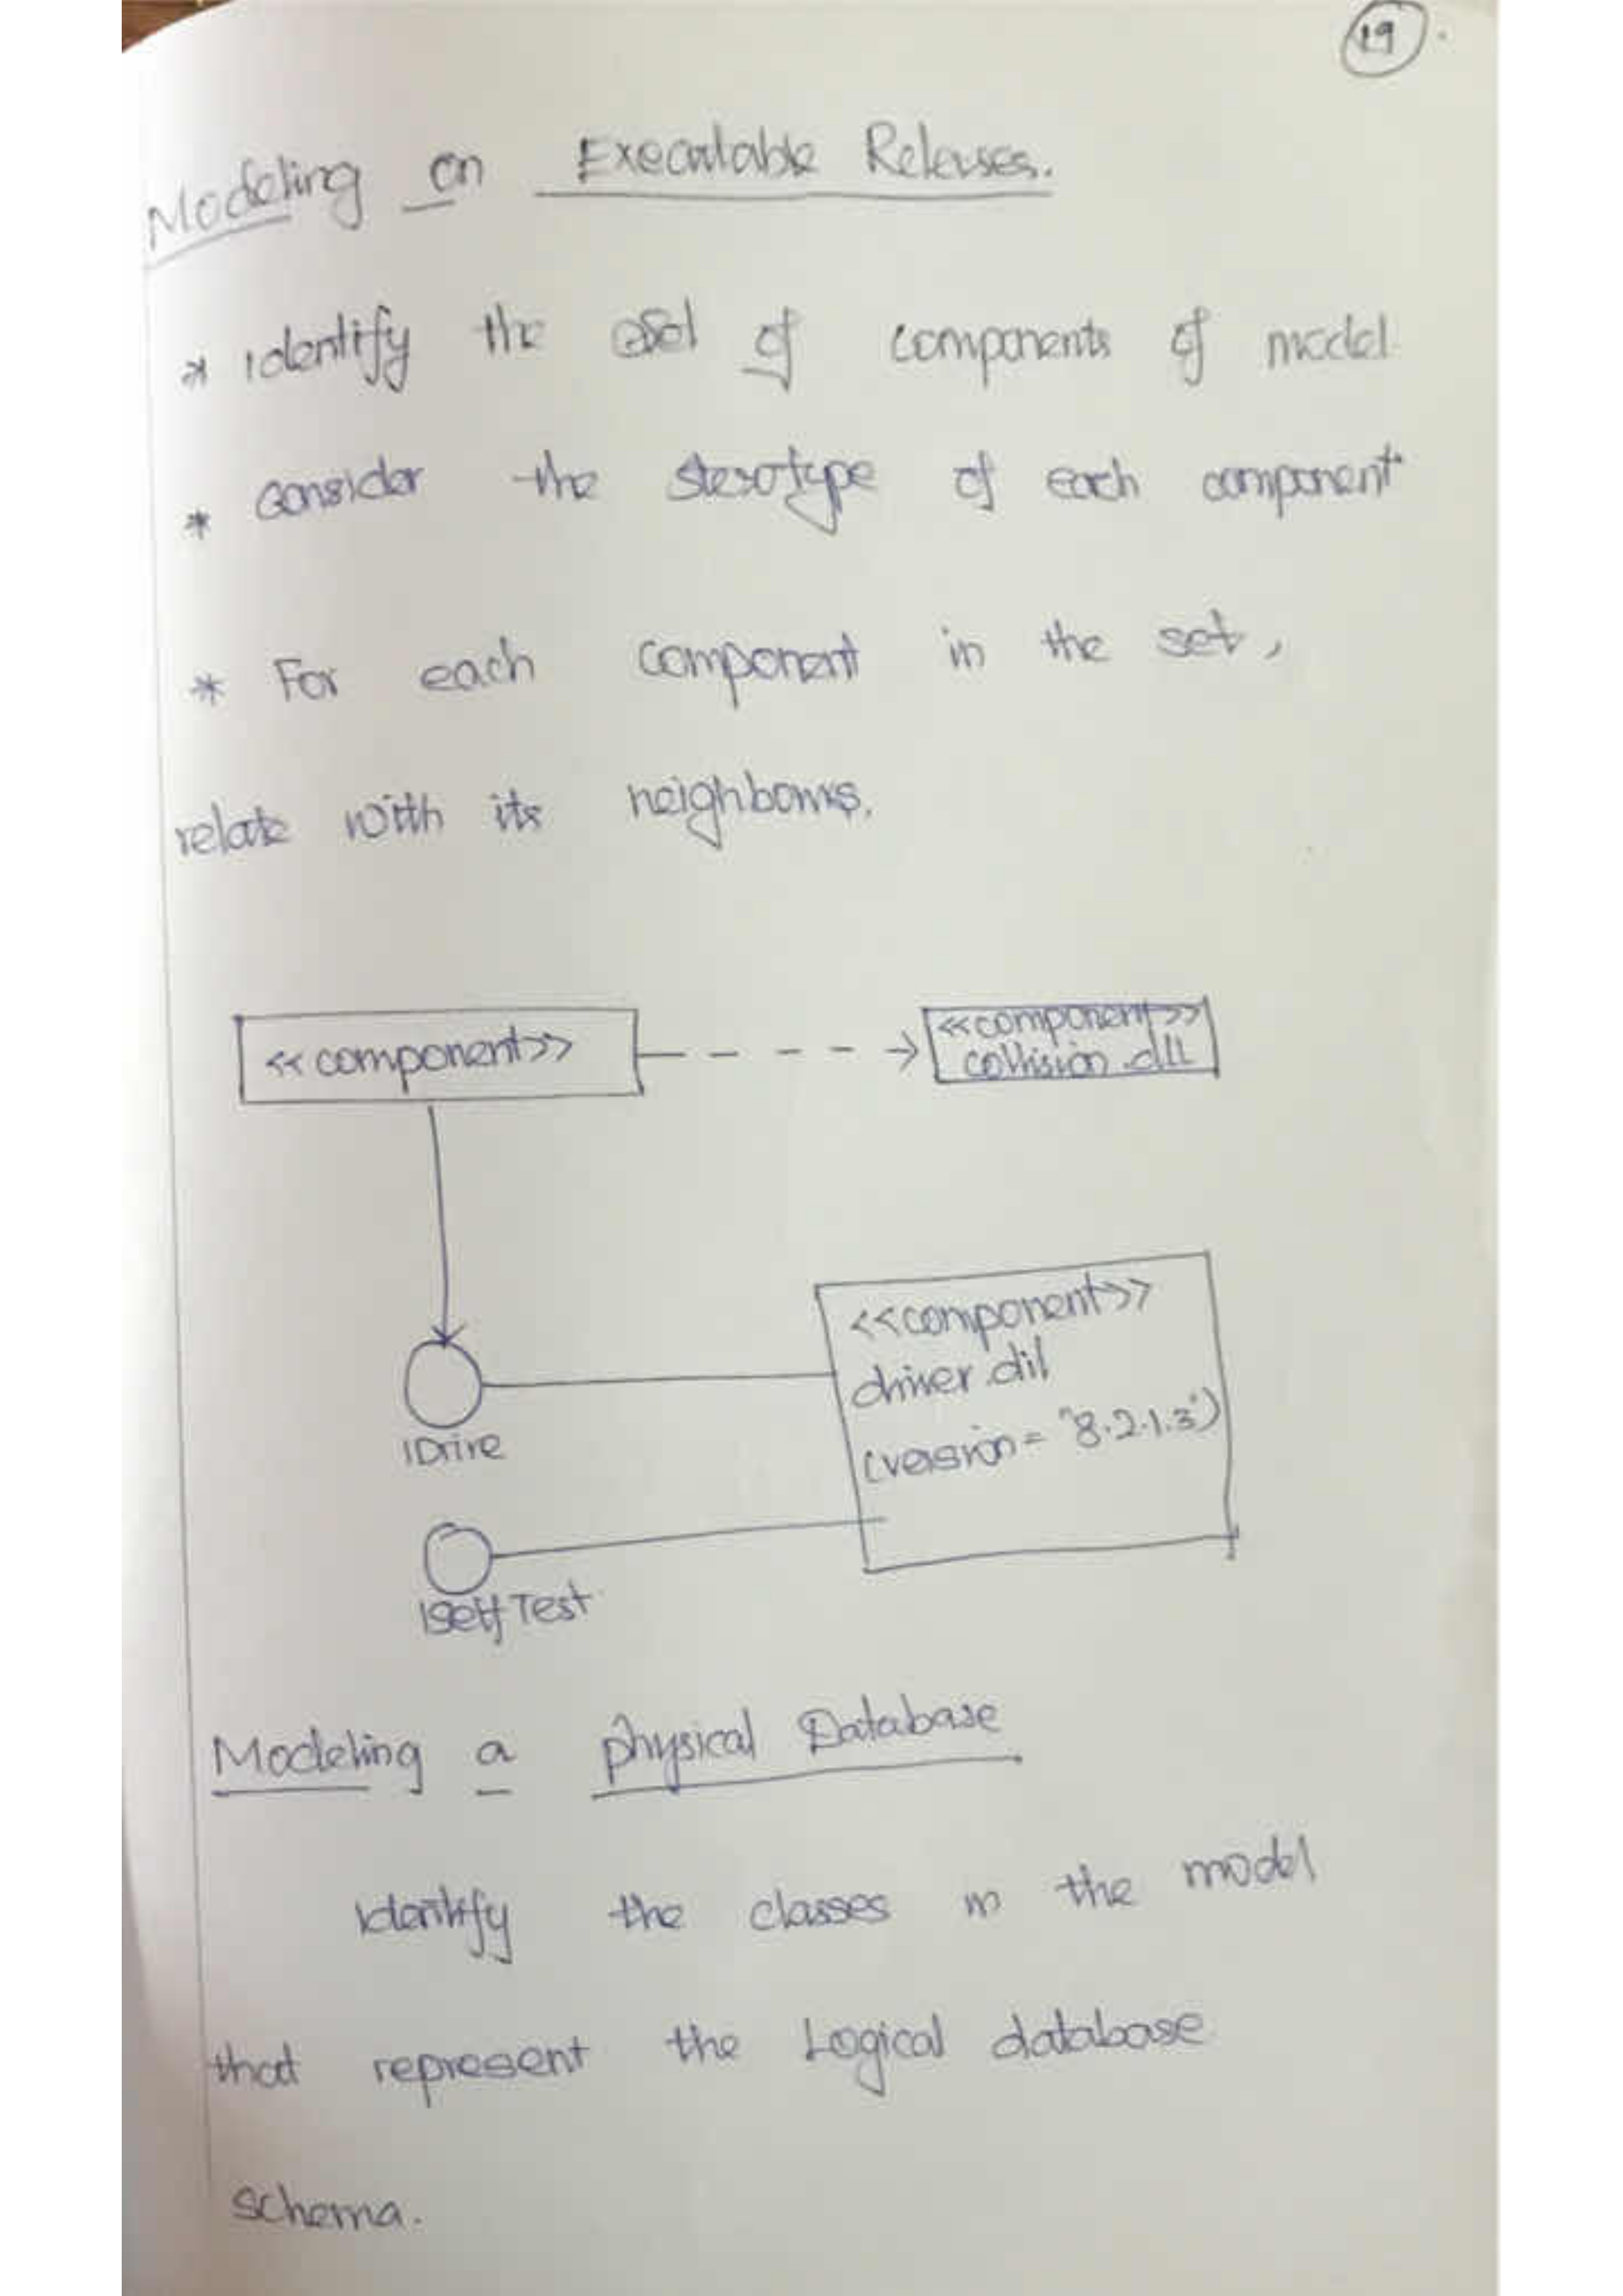 19
Modeling on Executable Releases.
* identify the set of components of model
* consider the sterotype of each component
* For each component in the set,
relate with its neighbours.
<<component>>
<<component>>
collision.dll
<<component>>
driver.dil
(version = "8.2.1.3")
IDrive
ISelf Test
Modeling a physical Database
identify the classes in the model
that represent the Logical database
schema.